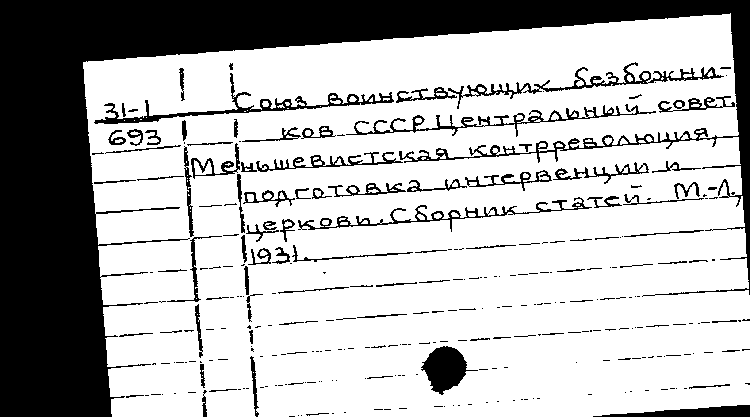 31-1 Союз воинствующих безбожни-
693 ков СССР Центральный совет.
Меньшевистская контрреволюция,
подготовка интервенции и
церкови. Сборник статей. М.-Л.,
1931.